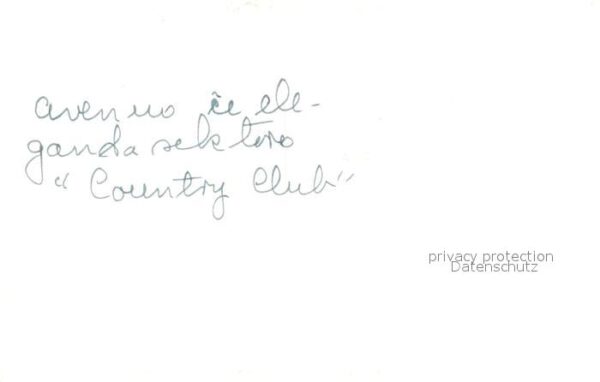 avenuo ĉe ele-
ganda sektoro
" Country Club"
privacy protection
Datenschutz